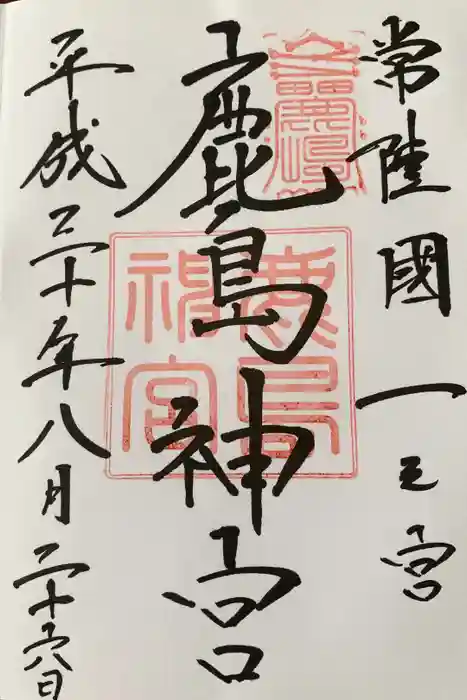 常陸國一之宮
鹿島神宮
平成三十年八月二十六日
鹿島
神宮